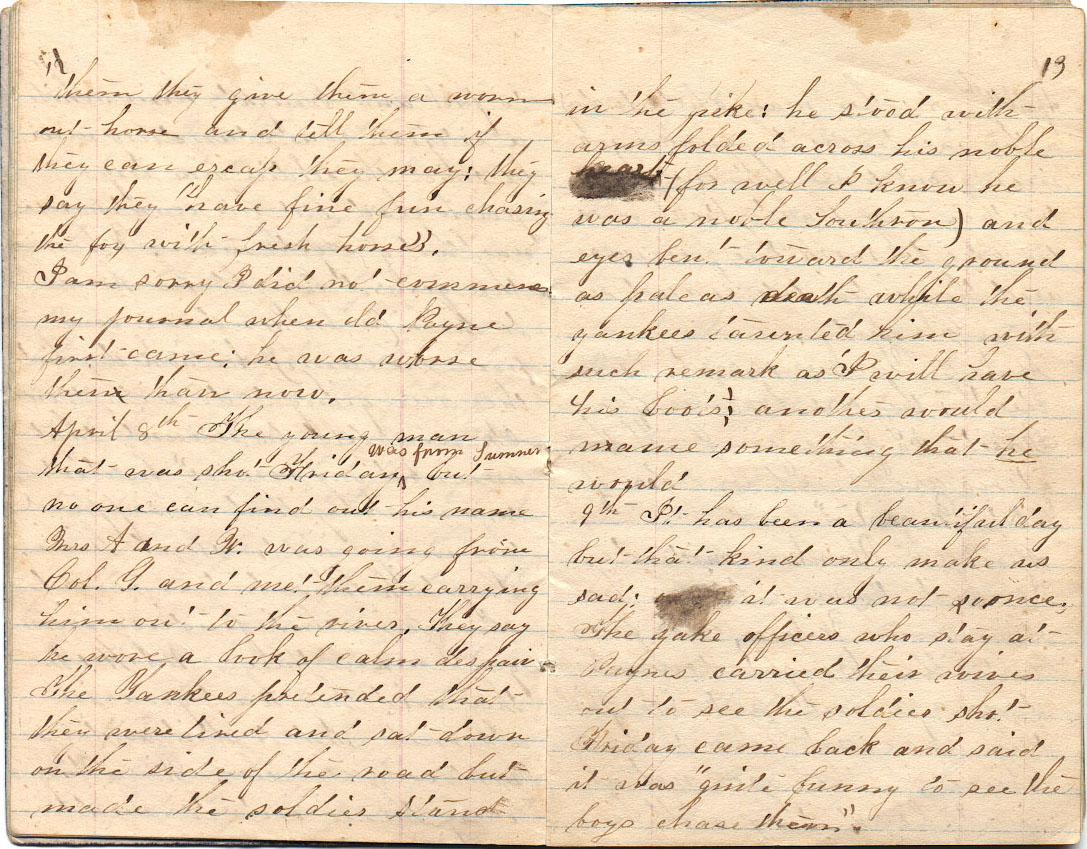 11
them they give them a worn
out horse and tell them if
they can excap they may: they
say they "have fine fun chasing
the fox with fresh horses".
I am sorry I did not commence
my journal when old Payne
first came; he was worse
then than now.
April 8th The young man
was from Sumner
that was shot Friday ^ but
no one can find out his name
Mrs A and W. was going from
Col. G. and met them carrying
him out to the river. They say
he wore a look of calm despair
The Yankees pretended that
they were tired and sat down
on the side of the road but
made the soldier stand
13
in the pike: he stood with
arms folded across his noble
heart (for well I know he
was a noble Southron) and
eyes bent toward the ground
as pale as death while the
yankees taunted him with
such remark as "I will have
his boots"; another would
name something that he
would
9th It has been a beautiful day
but that kind only make us
sad; it was not so once.
The yake officers who stay at
Paynes carried their wives
out to see the soldier shot
Friday came back and said
it was "quite funny to see the
boys chase them".